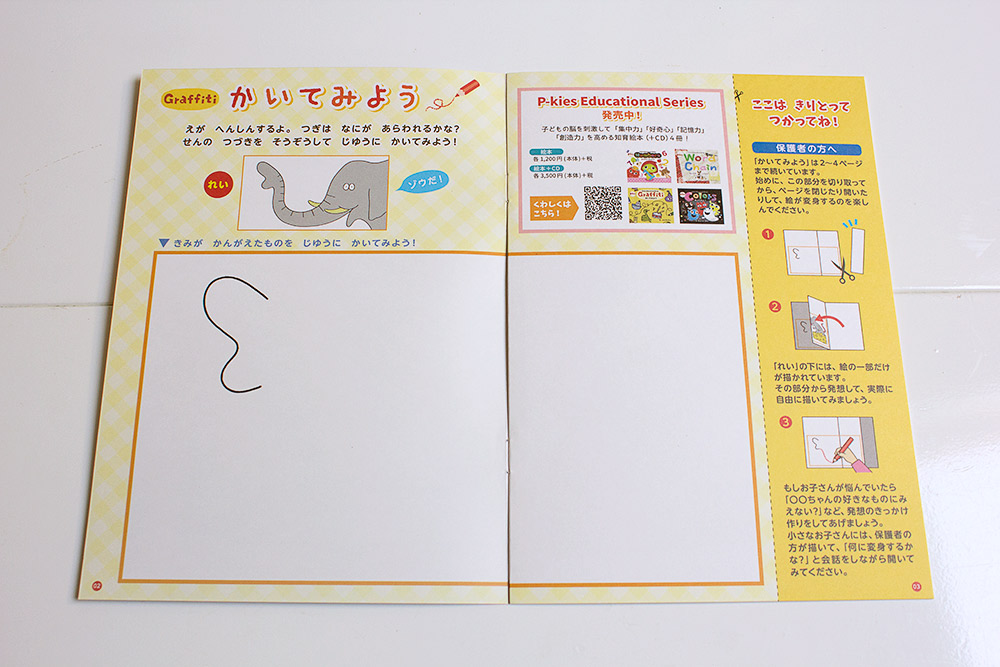 Graffiti
かいてみよう
えが へんしんするよ。 つぎは なにが あらわれるかな?
せんの つづきを そうぞうして じゆうに かいてみよう!
れい
ゾウだ!
▼ きみが かんがえたものを じゆうに かいてみよう!
02
P-kies Educational Series
発売中!
子どもの脳を刺激して「集中力」「好奇心」「記憶力」
「創造力」を高める知育絵本(+CD)4冊!
絵本
各1,200円(本体)+税
絵本+CD
各3,500円(本体)+税
くわしくは
こちら!
Word
Chain
Graffiti
Colors
ここは きりとって
つかってね!
保護者の方へ
「かいてみよう」は2~4ページ
まで続いています。
始めに、この部分を切り取って
から、ページを閉じたり開いた
りして、絵が変身するのを楽し
んでください。
1
2
「れい」の下には、絵の一部だけ
が描かれています。
その部分から発想して、実際に
自由に描いてみましょう。
3
もしお子さんが悩んでいたら
「〇〇ちゃんの好きなものにみ
えない?」など、発想のきっかけ
作りをしてあげましょう。
小さなお子さんには、保護者の
方が描いて、「何に変身するか
な?」と会話をしながら開いて
みてください。
03